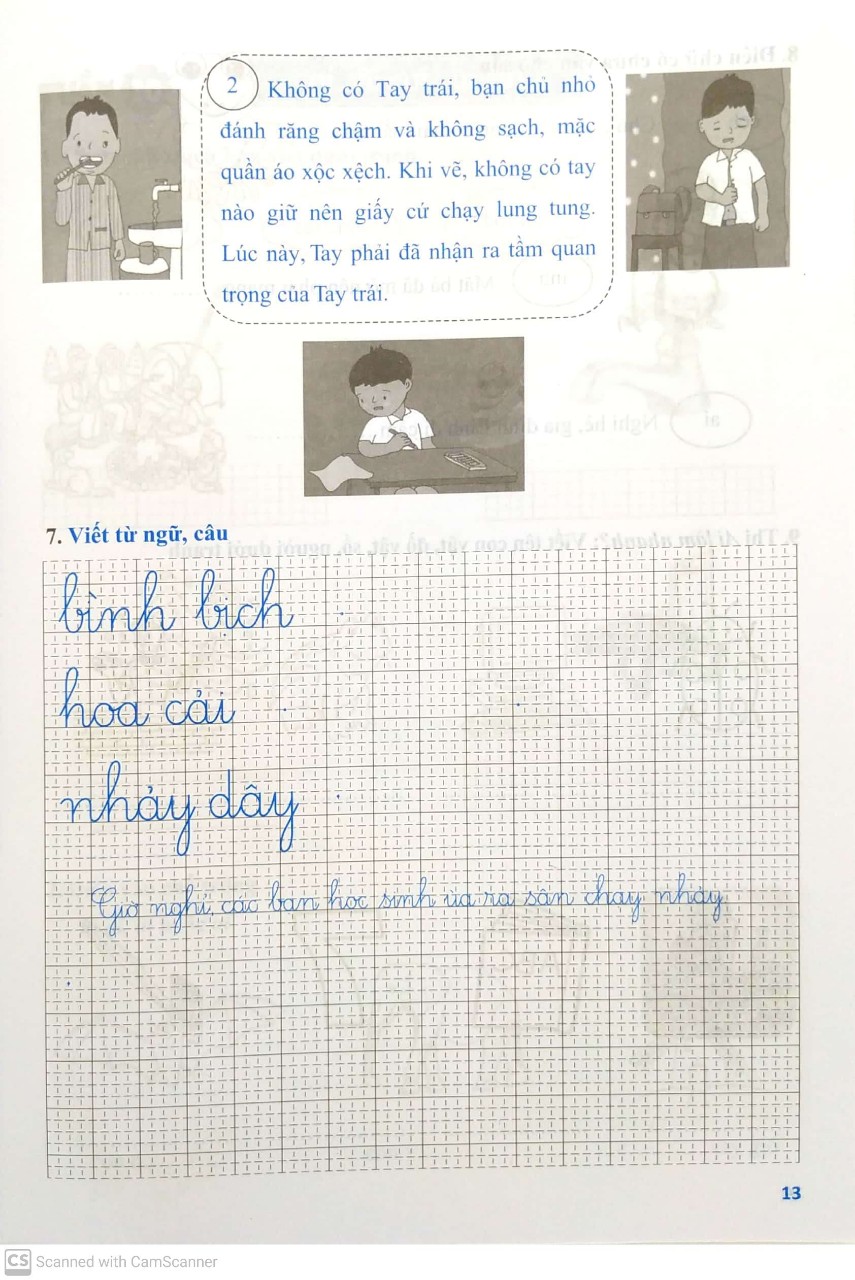 2
Không có Tay trái, bạn chủ nhỏ
đánh răng chậm và không sạch, mặc
quần áo xộc xệch. Khi vẽ, không có tay
nào giữ nên giấy cứ chạy lung tung.
Lúc này, Tay phải đã nhận ra tầm quan
trọng của Tay trái.
7. Viết từ ngữ, câu
bình bịch
hoa cải
nhảy dây
Giờ nghỉ, các bạn học sinh ùa ra sân chạy nhảy
13
CS Scanned with CamScanner